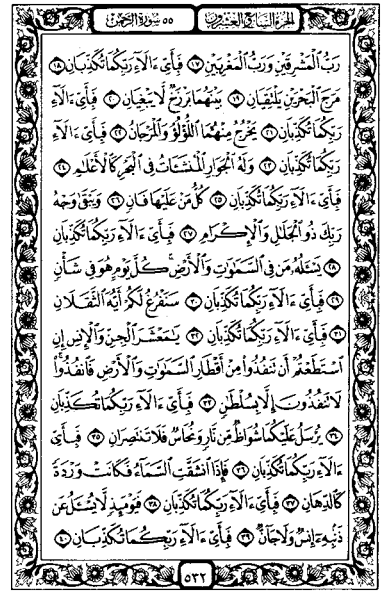 الجزء السابع والعشرون ٥٥ سورة الرحمن
رَبُّ ٱلْمَشْرِقَيْنِ وَرَبُّ ٱلْمَغْرِبَيْنِ ١٧ فَبِأَىِّ ءَالَآءِ رَبِّكُمَا تُكَذِّبَانِ ١٨
مَرَجَ ٱلْبَحْرَيْنِ يَلْتَقِيَانِ ١٩ بَيْنَهُمَا بَرْزَخٌ لَّا يَبْغِيَانِ ٢٠ فَبِأَىِّ ءَالَآءِ
رَبِّكُمَا تُكَذِّبَانِ ٢١ يَخْرُجُ مِنْهُمَا ٱللُّؤْلُؤُ وَٱلْمَرْجَانُ ٢٢ فَبِأَىِّ ءَالَآءِ
رَبِّكُمَا تُكَذِّبَانِ ٢٣ وَلَهُ ٱلْجَوَارِ ٱلْمُنشَـَٔاتُ فِى ٱلْبَحْرِ كَٱلْأَعْلَٰمِ ٢٤
فَبِأَىِّ ءَالَآءِ رَبِّكُمَا تُكَذِّبَانِ ٢٥ كُلُّ مَنْ عَلَيْهَا فَانٍ ٢٦ وَيَبْقَىٰ وَجْهُ
رَبِّكَ ذُو ٱلْجَلَٰلِ وَٱلْإِكْرَامِ ٢٧ فَبِأَىِّ ءَالَآءِ رَبِّكُمَا تُكَذِّبَانِ
٢٨ يَسْـَٔلُهُۥ مَن فِى ٱلسَّمَٰوَٰتِ وَٱلْأَرْضِ ۚ كُلَّ يَوْمٍ هُوَ فِى شَأْنٍ
٢٩ فَبِأَىِّ ءَالَآءِ رَبِّكُمَا تُكَذِّبَانِ ٣٠ سَنَفْرُغُ لَكُمْ أَيُّهَ ٱلثَّقَلَانِ
٣١ فَبِأَىِّ ءَالَآءِ رَبِّكُمَا تُكَذِّبَانِ ٣٢ يَٰمَعْشَرَ ٱلْجِنِّ وَٱلْإِنسِ إِنِ
ٱسْتَطَعْتُمْ أَن تَنفُذُوا۟ مِنْ أَقْطَارِ ٱلسَّمَٰوَٰتِ وَٱلْأَرْضِ فَٱنفُذُوا۟ ۚ
لَا تَنفُذُونَ إِلَّا بِسُلْطَٰنٍ ٣٣ فَبِأَىِّ ءَالَآءِ رَبِّكُمَا تُكَذِّبَانِ
٣٤ يُرْسَلُ عَلَيْكُمَا شُوَاظٌ مِّن نَّارٍ وَنُحَاسٌ فَلَا تَنتَصِرَانِ ٣٥ فَبِأَىِّ
ءَالَآءِ رَبِّكُمَا تُكَذِّبَانِ ٣٦ فَإِذَا ٱنشَقَّتِ ٱلسَّمَآءُ فَكَانَتْ وَرْدَةً
كَٱلدِّهَانِ ٣٧ فَبِأَىِّ ءَالَآءِ رَبِّكُمَا تُكَذِّبَانِ ٣٨ فَيَوْمَئِذٍ لَّا يُسْـَٔلُ عَن
ذَنۢبِهِۦٓ إِنسٌ وَلَا جَآنٌّ ٣٩ فَبِأَىِّ ءَالَآءِ رَبِّكُمَا تُكَذِّبَانِ ٤٠
٥٣٢